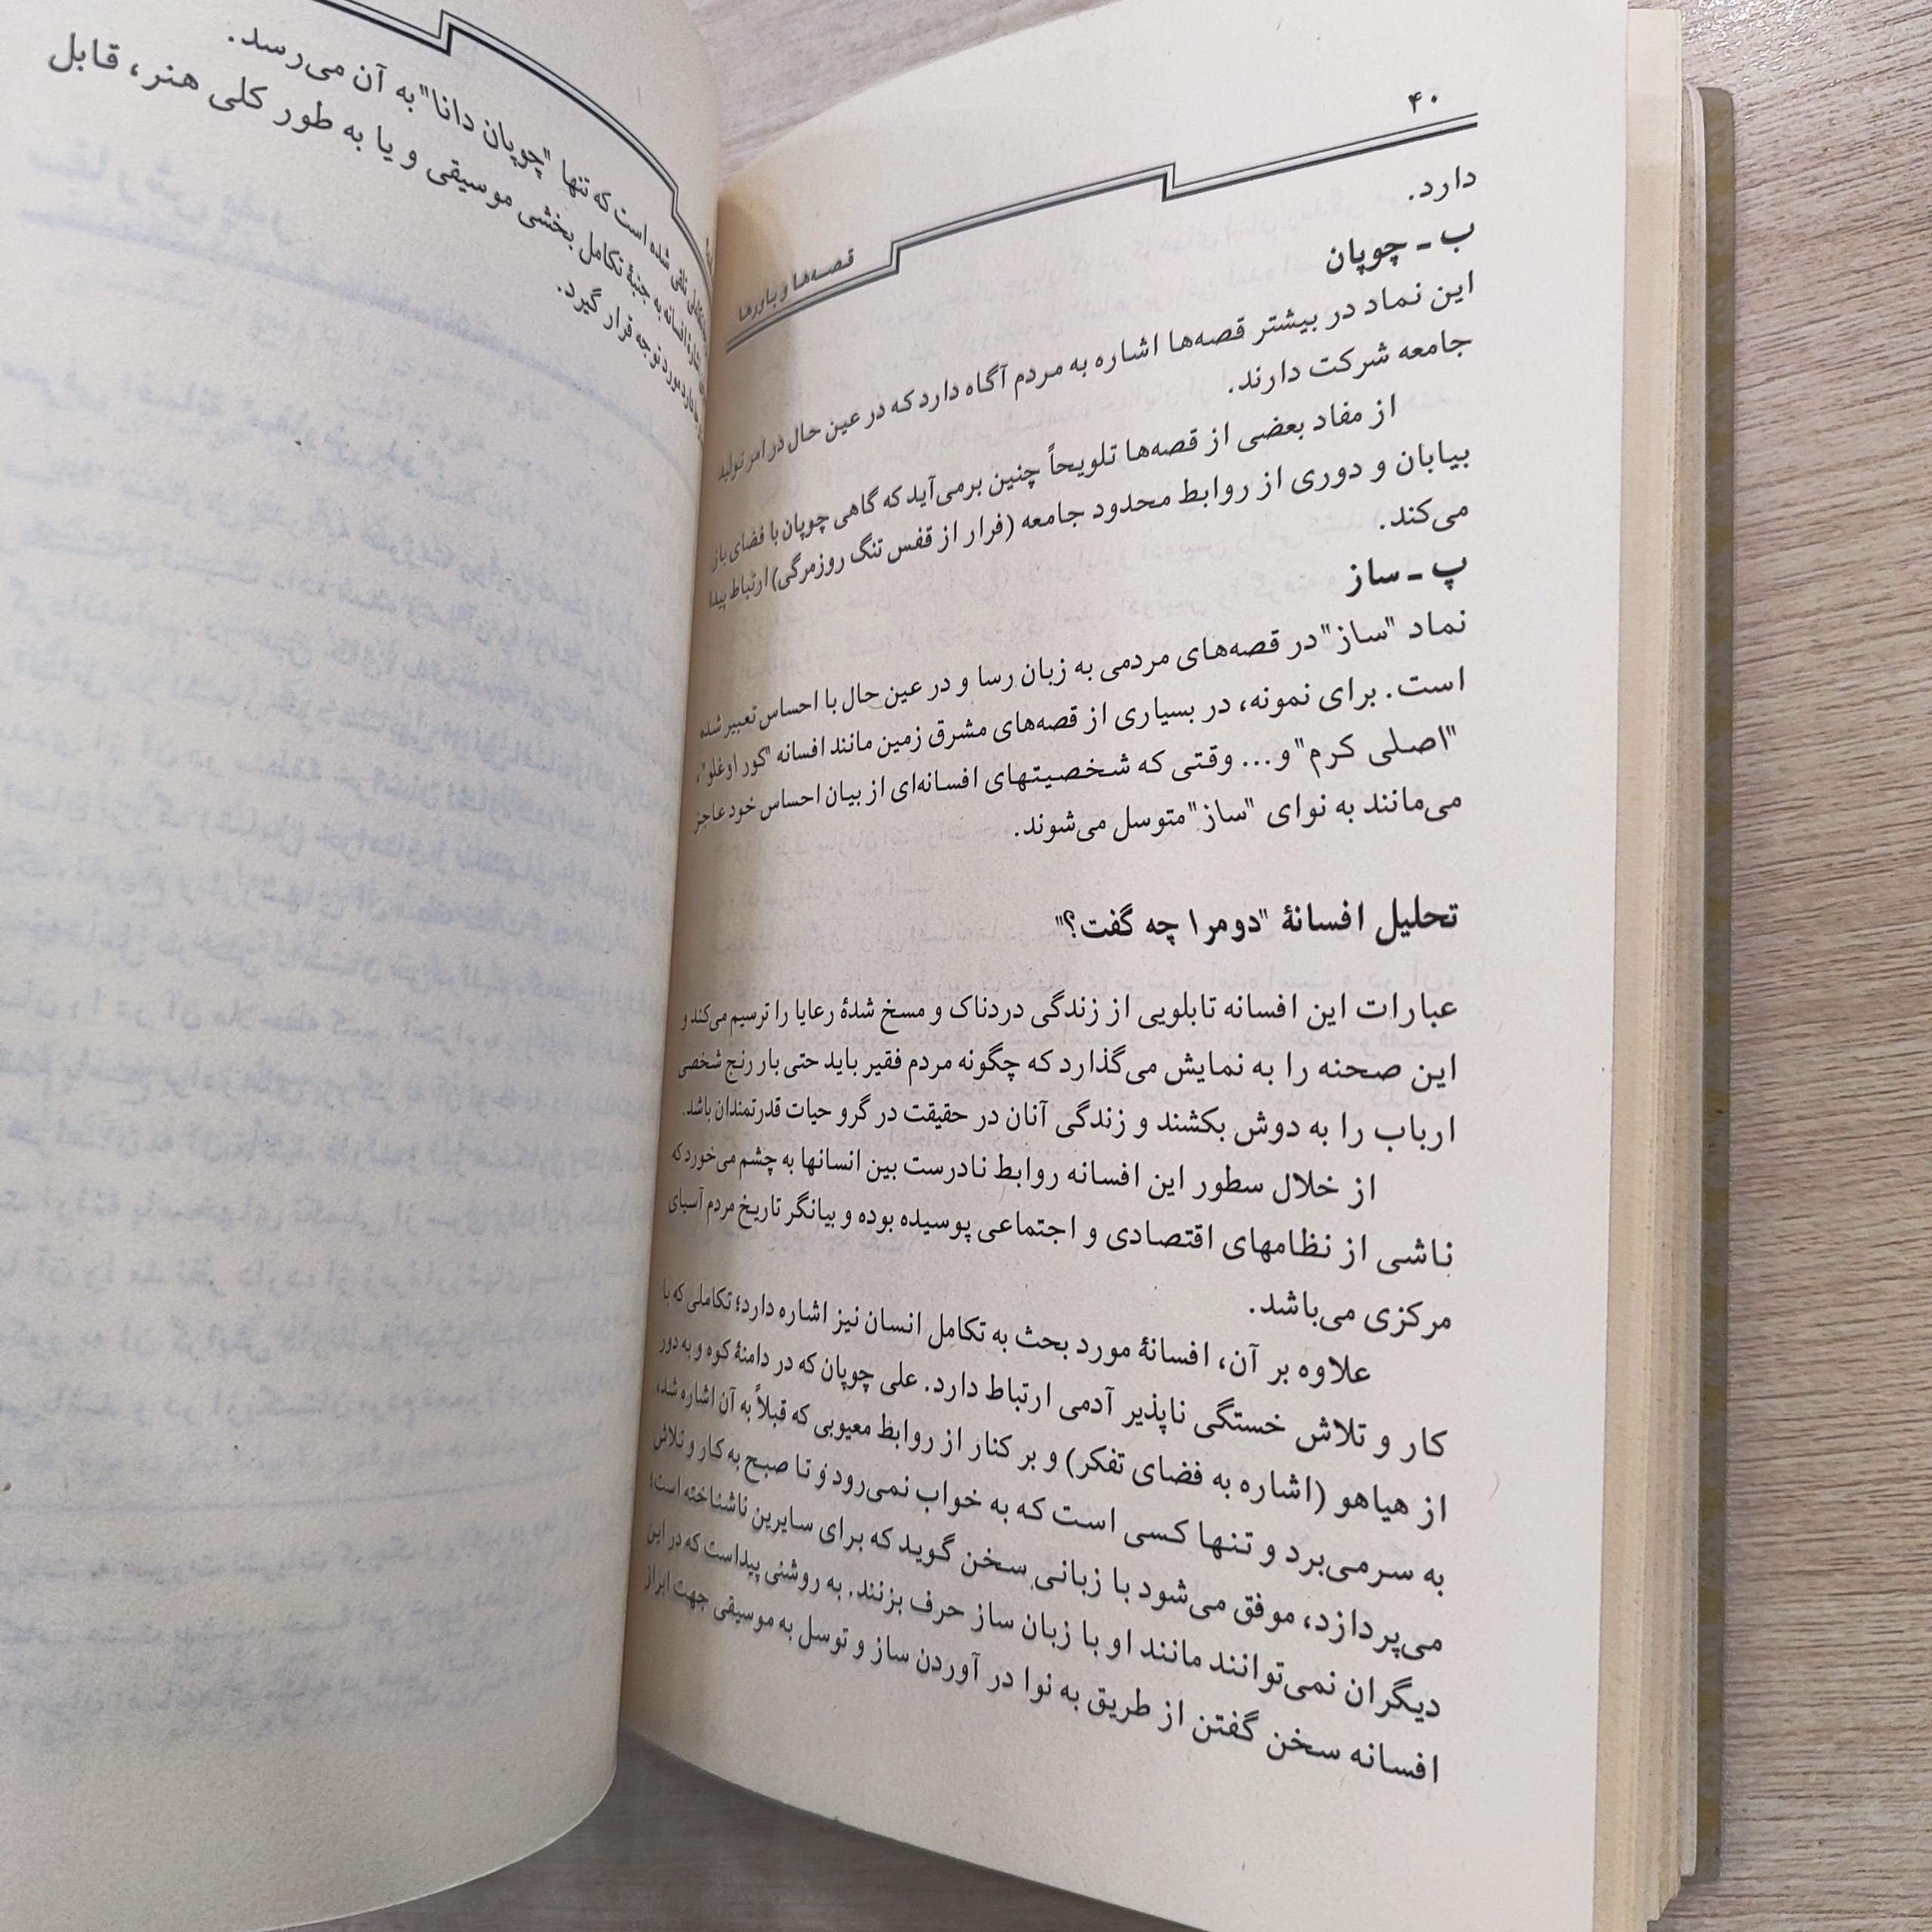 ۴۰
قصه‌ها و باورها
دارد.
ب ـ چوپان
این نماد در بیشتر قصه‌ها اشاره به مردم آگاه دارد که در عین حال در امر تولید
جامعه شرکت دارند.
از مفاد بعضی از قصه‌ها تلویحاً چنین برمی‌آید که گاهی چوپان با فضای باز
بیابان و دوری از روابط محدود جامعه (فرار از قفس تنگ روزمرگی) ارتباط پیدا
می‌کند.
پ ـ ساز
نماد "ساز" در قصه‌های مردمی به زبان رسا و در عین حال با احساس تعبیر شده
است. برای نمونه، در بسیاری از قصه‌های مشرق زمین مانند افسانه "کور اوغلو"،
"اصلی کرم" و... وقتی که شخصیتهای افسانه‌ای از بیان احساس خود عاجز
می‌مانند به نوای "ساز" متوسل می‌شوند.
تحلیل افسانهٔ "دومرا چه گفت؟"
عبارات این افسانه تابلویی از زندگی دردناک و مسخ شدهٔ رعایا را ترسیم می‌کند و
این صحنه را به نمایش می‌گذارد که چگونه مردم فقیر باید حتی بار رنج شخصی
ارباب را به دوش بکشند و زندگی آنان در حقیقت در گرو حیات قدرتمندان باشد.
از خلال سطور این افسانه روابط نادرست بین انسانها به چشم می‌خورد که
ناشی از نظامهای اقتصادی و اجتماعی پوسیده بوده و بیانگر تاریخ مردم آسیای
مرکزی می‌باشد.
علاوه بر آن، افسانهٔ مورد بحث به تکامل انسان نیز اشاره دارد؛ تکاملی که با
کار و تلاش خستگی ناپذیر آدمی ارتباط دارد. علی چوپان که در دامنهٔ کوه و به دور
از هیاهو (اشاره به فضای تفکر) و بر کنار از روابط معیوبی که قبلاً به آن اشاره شد،
به سر می‌برد و تنها کسی است که به خواب نمی‌رود و تا صبح به کار و تلاش
می‌پردازد، موفق می‌شود با زبانی سخن گوید که برای سایرین ناشناخته است؛
دیگران نمی‌توانند مانند او با زبان ساز حرف بزنند. به روشنی پیداست که در این
افسانه سخن گفتن از طریق به نوا در آوردن ساز و توسل به موسیقی جهت ابراز
تلقی شده است که تنها "چوپان دانا" به آن می‌رسد.
اشارهٔ افسانه به جنبهٔ تکامل بخشی موسیقی و یا به طور کلی هنر، قابل
مورد توجه قرار گیرد.